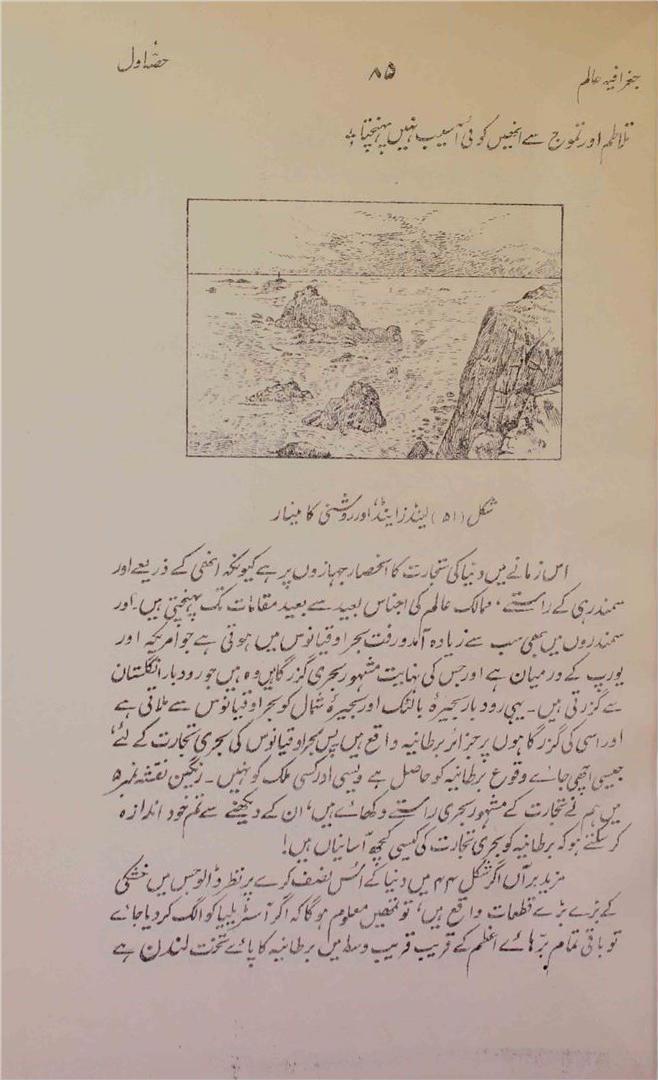 جغرافیہ عالم ۸۵ حصۂ اول
تلاطم اور تموج سے انھیں کوئی آسیب نہیں پہنچتا ؛
شکل (۵۱) لینڈز اینڈ، اور روشنی کا مینار
اس زمانے میں دنیا کی تجارت کا انحصار جہازوں پر ہے کیونکہ انھی کے ذریعے اور
سمندر ہی کے راستے، ممالک عالم کی اجناس بعید سے بعید مقامات تک پہنچتی ہیں۔ اور
سمندروں میں بھی سب سے زیادہ آمدورفت بحر اوقیانوس میں ہوتی ہے جو امریکہ اور
یورپ کے درمیان ہے اور جس کی نہایت مشہور بحری گزرگاہیں وہ ہیں جو رودبار انگلستان
سے گزرتی ہیں۔ یہی رودبار بحیرۂ بالٹک اور بحیرۂ شمال کو بحر اوقیانوس سے ملاتی ہے
اور اسی کی گزرگاہوں پر جزائر برطانیہ واقع ہیں پس بحر اوقیانوس کی بحری تجارت کے لئے،
جیسی اچھی جائے وقوع برطانیہ کو حاصل ہے ویسی اور کسی ملک کو نہیں۔ رنگین نقشہ نمبر ۵
میں ہم نے تجارت کے مشہور بحری راستے دکھائے ہیں، ان کے دیکھنے سے تم خود اندازہ
کر سکتے ہو کہ برطانیہ کو بحری تجارت کی کیسی کچھ آسانیاں ہیں!
مزید برآں اگر شکل ۴۴ میں دنیا کے اُس نصف کرے پر نظر ڈالو جس میں خشکی
کے بڑے بڑے قطعات واقع ہیں، تو تمھیں معلوم ہوگا کہ اگر آسٹریلیا کو الگ کر دیا جائے
تو باقی تمام برّ ہائے اعظم کے قریب قریب وسط میں برطانیہ کا پائے تخت لندن ہے